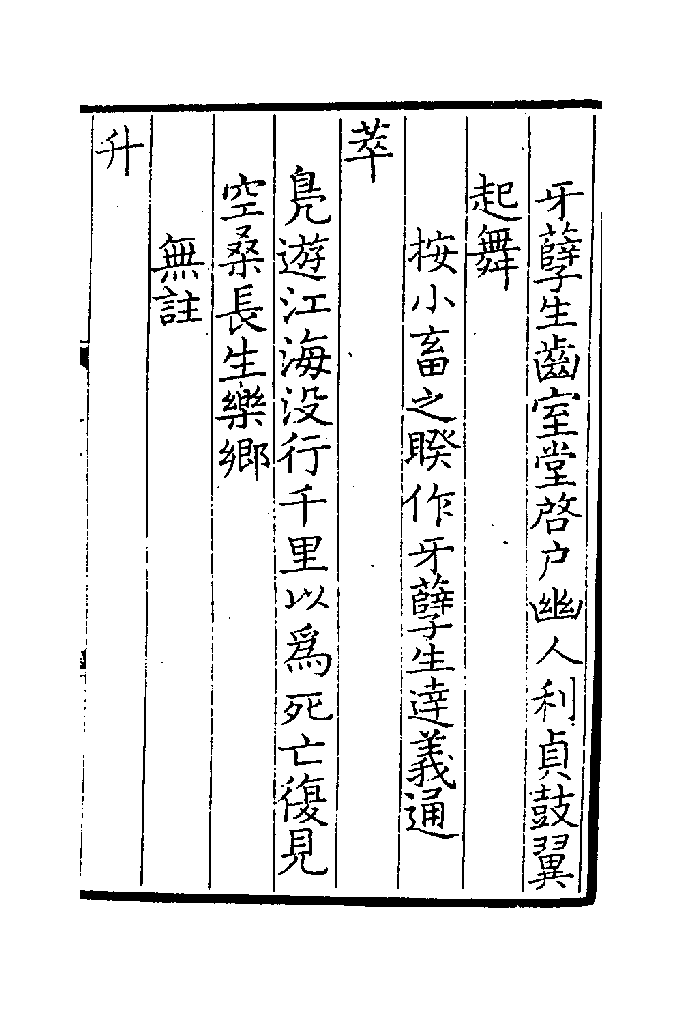 牙孽生齒室堂啓户幽人利貞鼓翼
起舞
按小畜之睽作牙孽生達義通
萃
鳧遊江海没行千里以爲死亡復見
空桑長生樂鄉
無註
升